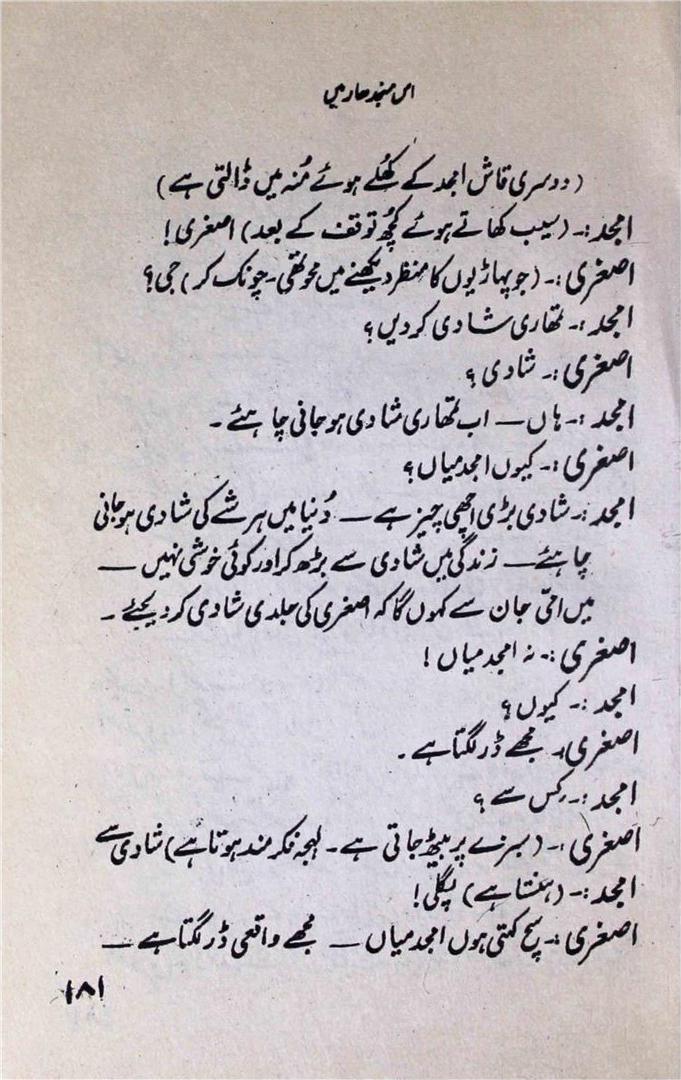 اس منجدھار میں
(دوسری قاش امجد کے کھُلے ہوئے مُنہ میں ڈالتی ہے)
امجد :۔ (سیب کھاتے ہوئے کچھ توقف کے بعد) اصغری!
اصغری :۔ (جو پہاڑیوں کا منظر دیکھنے میں محو تھی۔ چونک کر) جی؟
امجد :۔ تمھاری شادی کر دیں؟
اصغری :۔ شادی؟
امجد :۔ ہاں — اب تمھاری شادی ہو جانی چاہئے۔
اصغری :۔ کیوں امجد میاں؟
امجد :۔ شادی بڑی اچھی چیز ہے — دُنیا میں ہر شے کی شادی ہو جانی
چاہئے — زندگی میں شادی سے بڑھ کر اور کوئی خوشی نہیں —
میں امّی جان سے کہوں گا کہ اصغری کی جلدی شادی کر دیجئے۔
اصغری :۔ نہ امجد میاں!
امجد :۔ کیوں؟
اصغری :۔ مجھے ڈر لگتا ہے۔
امجد :۔ کس سے؟
اصغری :۔ (سبزے پر بیٹھ جاتی ہے۔ لہجہ فکر مند ہوتا ہے) شادی سے
امجد :۔ (ہنستا ہے) پگلی!
اصغری :۔ سچ کہتی ہوں امجد میاں — مجھے واقعی ڈر لگتا ہے —
۱۸۱